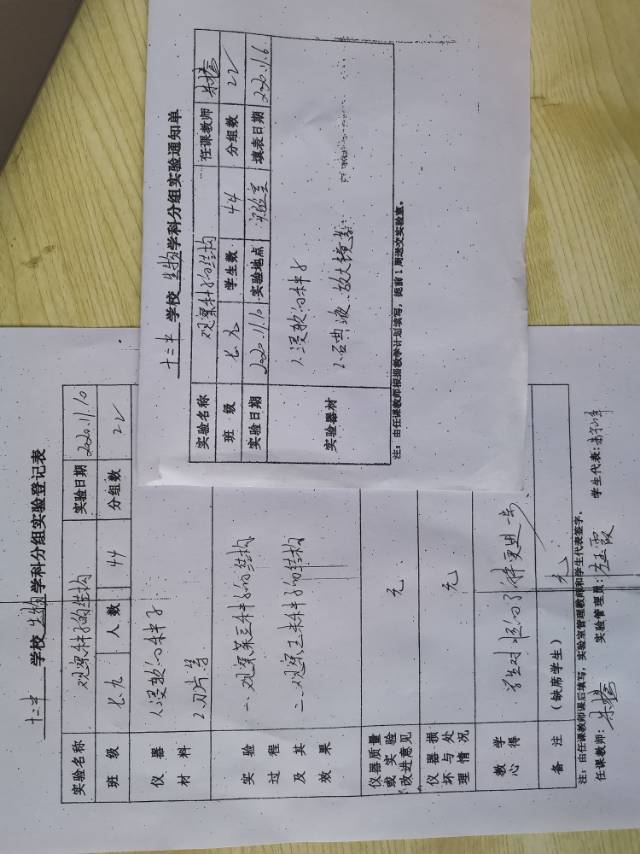 十三中 学校 生物 学科分组实验通知单
实验名称 观察种子的结构 任课教师
班级 七九 学生数 44 分组数 22
实验日期 2020.11.10 实验地点 实验室 填表日期 2020.11.6
实验器材
1、浸软的种子
2、碘液、放大镜等
注：由任课教师根据教学计划填写，提前1周送交实验室。
十三中 学校 生物 学科分组实验登记表
实验名称 观察种子的结构 实验日期 2020.11.10
班级 七九 人数 44 分组数 22
仪器材料
1、浸软的种子
2、刀片等
实验过程及其效果
一、观察菜豆种子的结构
二、观察玉米种子的结构
仪器质量或实验改进意见 无
仪器损坏与处理情况 无
教学心得
备注 （缺席学生） 无
注：由任课教师课后填写，实验室管理教师和学生代表签字。
任课教师： 实验管理员： 学生代表：